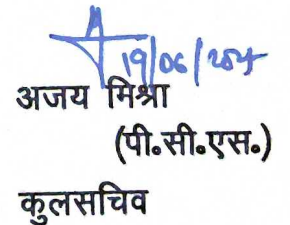 19/06/
अजय मिश्रा
(पी.सी.एस.)
कुलसचिव